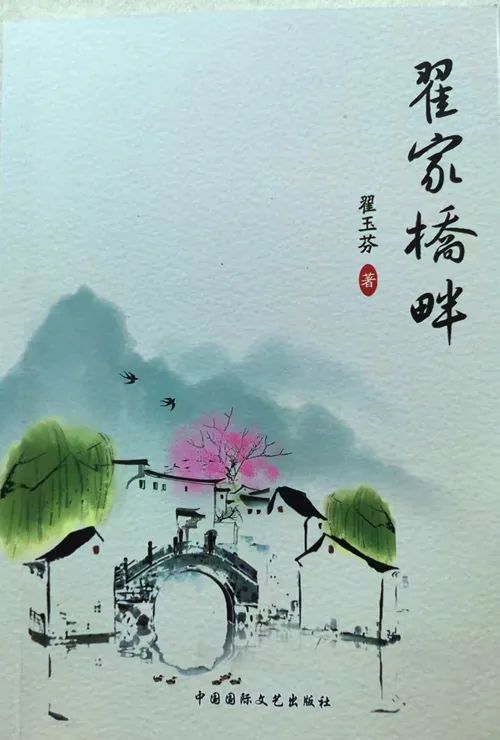 翟家橋畔
翟玉芬
著
中国国际文艺出版社